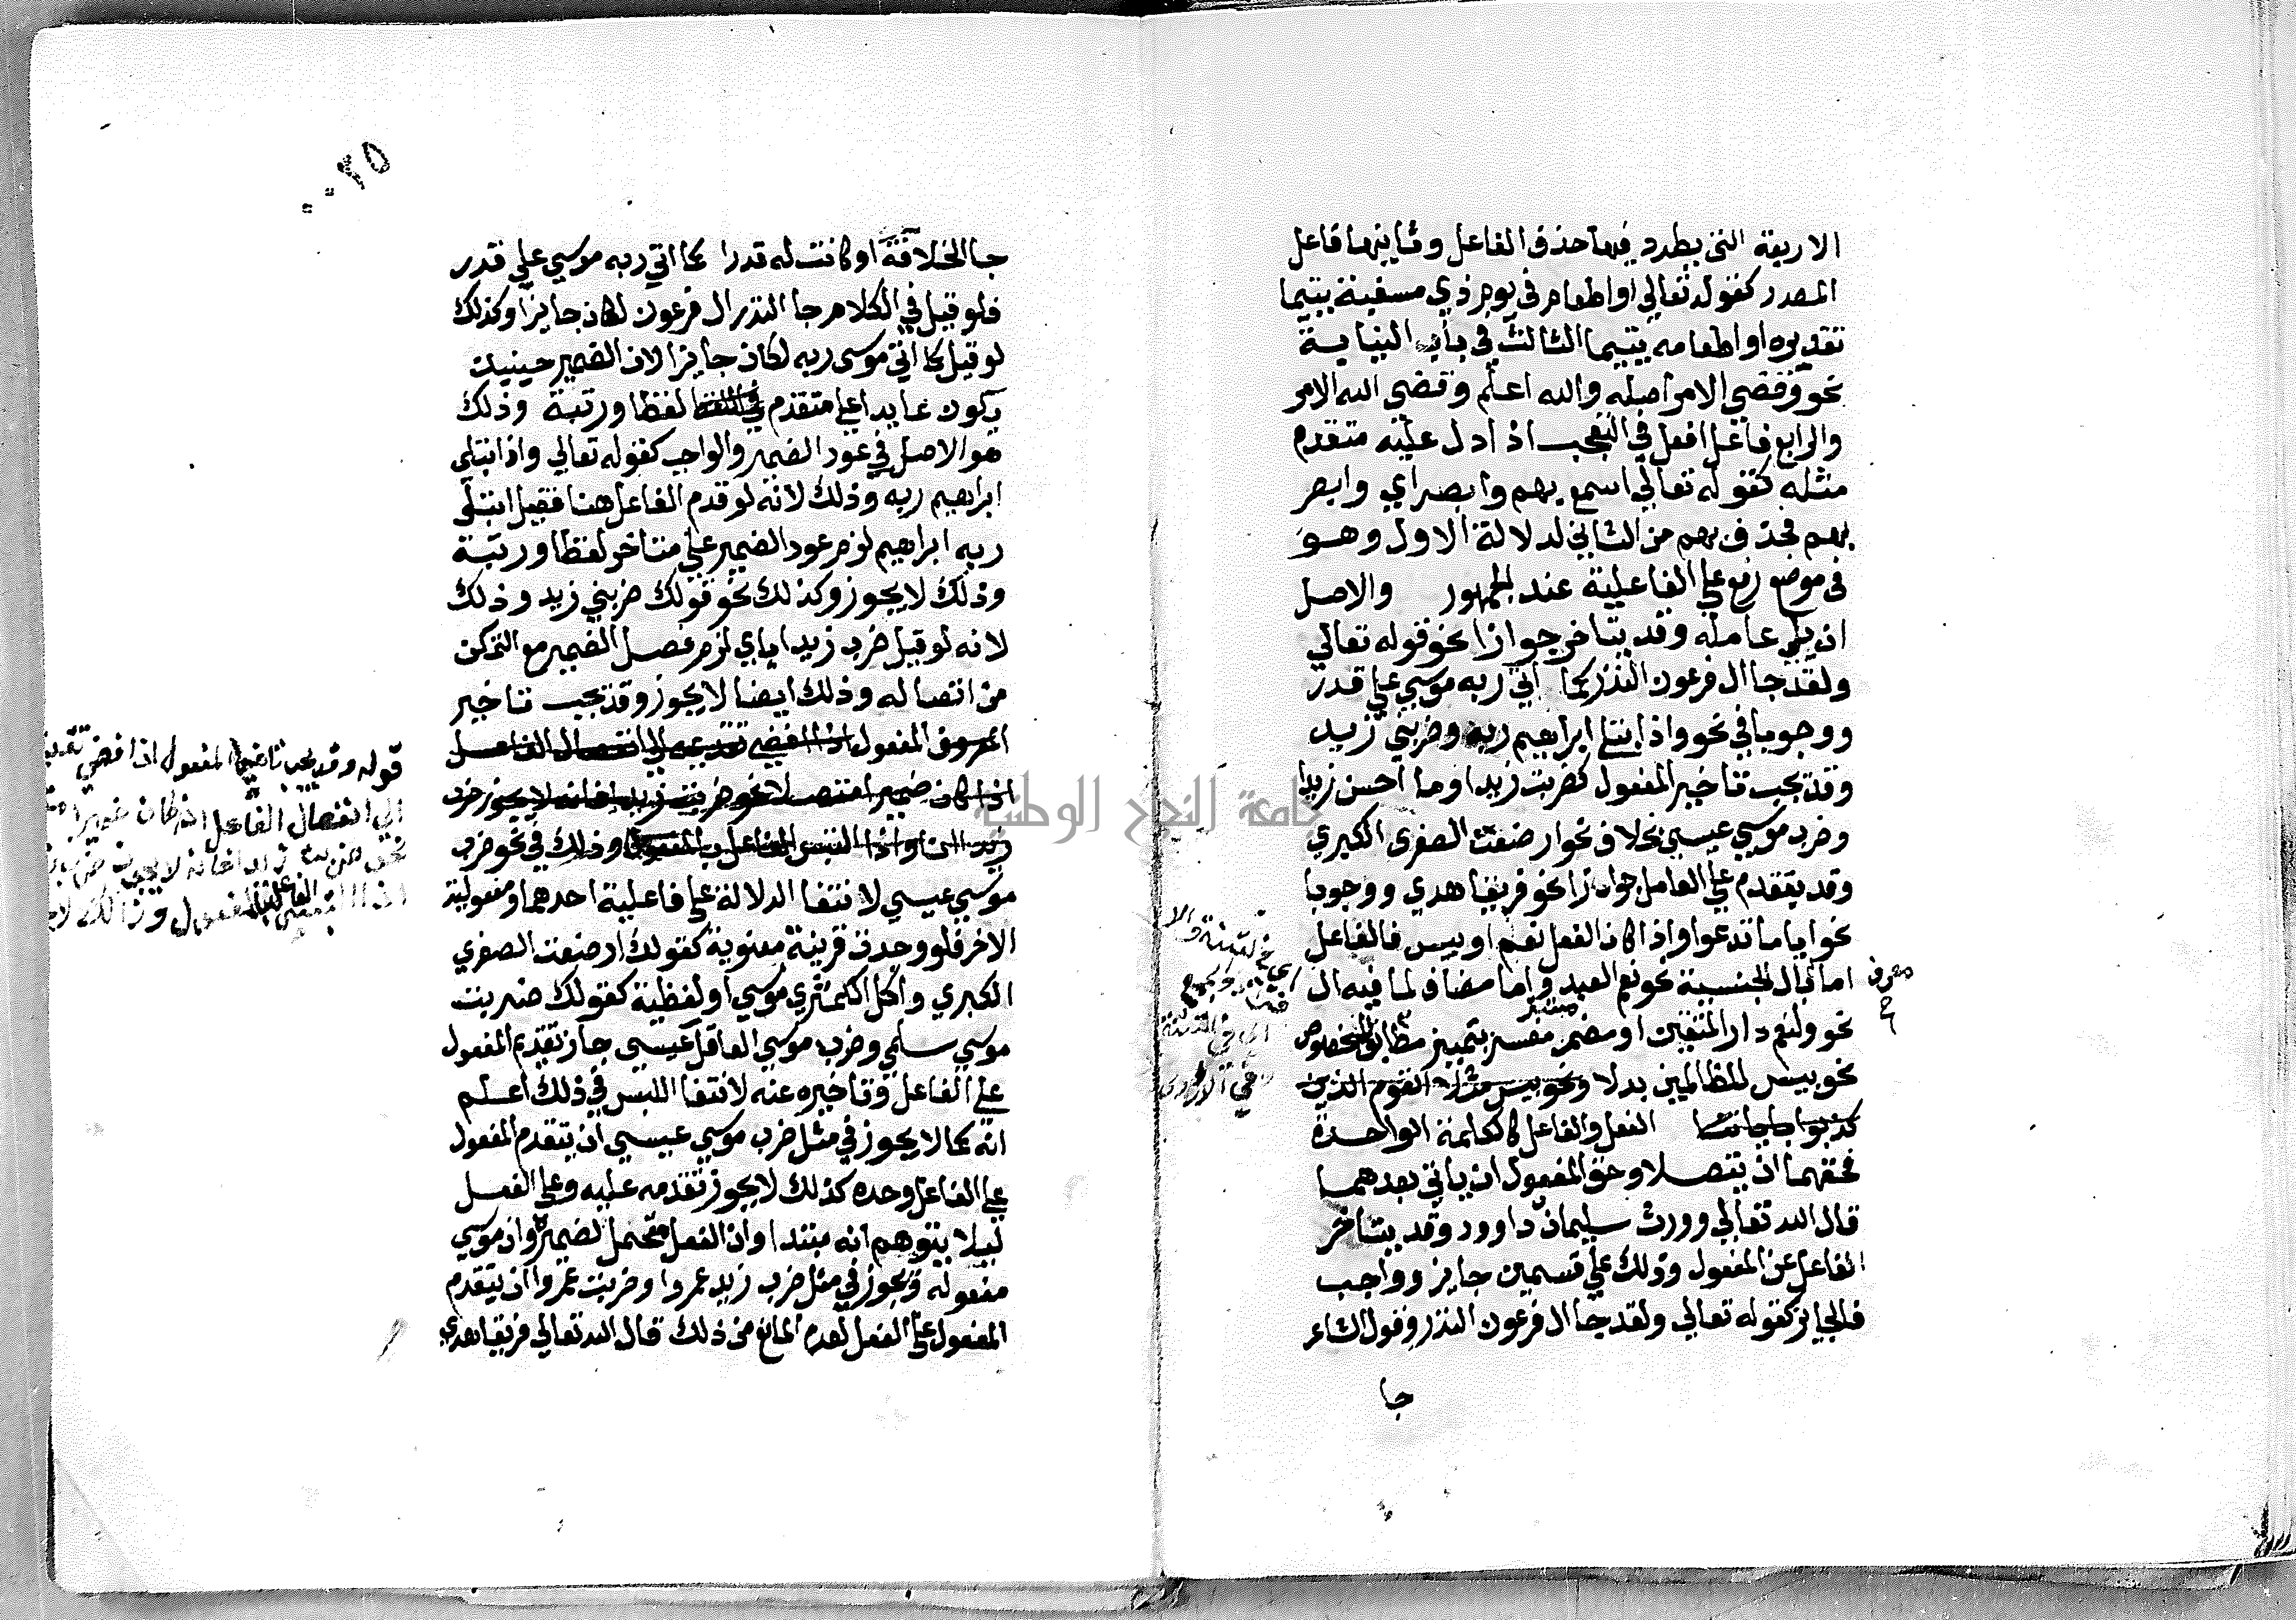 الاربعة التي يطرد فيها حذف الفاعل وثانيها فاعل
المصدر كقوله تعالي او اطعام في يوم ذي مسغبة يتيما
تقديره او اطعامه يتيما الثالث في باب النيابة
نحو وقضي الامر اصله والله اعلم وقضي الله الامر
والرابع فاعل افعل في التعجب اذا دل عليه متقدم
مثله كقوله تعالي اسمع بهم وابصر اي وابصر
بهم فحذف بهم من الثاني لدلالة الاول وهو
في موضع رفع علي الفاعلية عند الجمهور والاصل
ان يلي عامله وقد يتاخر جوازا نحو قوله تعالي
ولقد جا ال فرعون النذر كما اتي ربه موسي علي قدر
ووجوبا في نحو واذ ابتلي ابراهيم ربه وضربني زيد
وقد يجب تاخير المفعول كضربت زيدا وما احسن زيدا
وضرب موسي عيسي بخلاف نحو ارضعت الصغرى الكبري
وقد يتقدم علي العامل جوازا نحو فريقا هدي ووجوبا
نحو ايا ما تدعوا واذا كان الفعل نعم او بيس فالفاعل
اما بال الجنسية نحو نعم العبد واما مضاف لما فيه ال
معرف
نحو ولنعم دار المتقين او مضمر مفسر بتمييز مطابق للمخصوص
مستتر
نحو بيس للظالمين بدلا ونحو بيس مثل القوم الذين
كذبوا باياتنا الفعل والفاعل كالكلمة الواحدة
فحقهما ان يتصلا وحق المفعول ان ياتي بعدهما
قال الله تعالي وورث سليمان داوود وقد يتاخر
الفاعل عن المفعول وذلك علي قسمين جايز وواجب
فالجايز كقوله تعالي ولقد جا ال فرعون النذر وقول الشاعر
جا
٠٠٢٥
جا الخلافة او كانت له قدرا كما اتي ربه موسي علي قدر
فلو قيل في الكلام جا النذر ال فرعون لكان جايزا وكذلك
لو قيل كما اتي موسى ربه لكان جايزا لان الضمير حينيذ
يكون عايدا علي متقدم لفظا ورتبة وذلك
هو الاصل في عود الضمير والواجب كقوله تعالي واذ ابتلى
ابراهيم ربه وذلك لانه لو قدم الفاعل هنا فقيل ابتلى
ربه ابراهيم لزم عود الضمير علي متاخر لفظا ورتبة
وذلك لا يجوز وكذلك نحو قولك ضربني زيد وذلك
لانه لو قيل ضرب زيد اياي لزم فصل الضمير مع التمكن
من اتصاله وذلك ايضا لا يجوز وقد يجب تاخير
المفعول اذا افضي تقديمه الي انفصال الفاعل
اذا كان ضميرا متصلا نحو ضربت زيدا فانه لا يجوز ضرب
زيدا انا واذا التبس الفاعل بالمفعول وذلك في نحو ضرب
موسي عيسي لانتفا الدلالة علي فاعلية احدهما ومفعولية
الاخر فلو وجدت قرينة معنوية كقولك ارضعت الصغري
الكبري واكل الكمثري موسي او لفظية كقولك ضربت
موسي سلمي وضرب موسي العاقل عيسي جاز تقديم المفعول
علي الفاعل وتاخيره عنه لانتفا اللبس في ذلك اعلم
انه كما لا يجوز في مثل ضرب موسي عيسي ان يتقدم المفعول
علي الفاعل وحده كذلك لا يجوز تقدمه عليه وعلي الفعل
ليلا يتوهم انه مبتدا وان الفعل متحمل لضميره وان موسي
مفعوله ويجوز في مثل ضرب زيد عمروا وضربت عمروا ان يتقدم
المفعول علي الفعل لعدم المانع من ذلك قال الله تعالي فريقا هدي
قوله وقد يجب تاخير المفعول اذا افضي
الي انفصال الفاعل ان كان ضميرا
نحو ضربت زيدا فانه لا يجوز
اذا التبس الفاعل بالمفعول وذلك
جامعة النجاح الوطنية